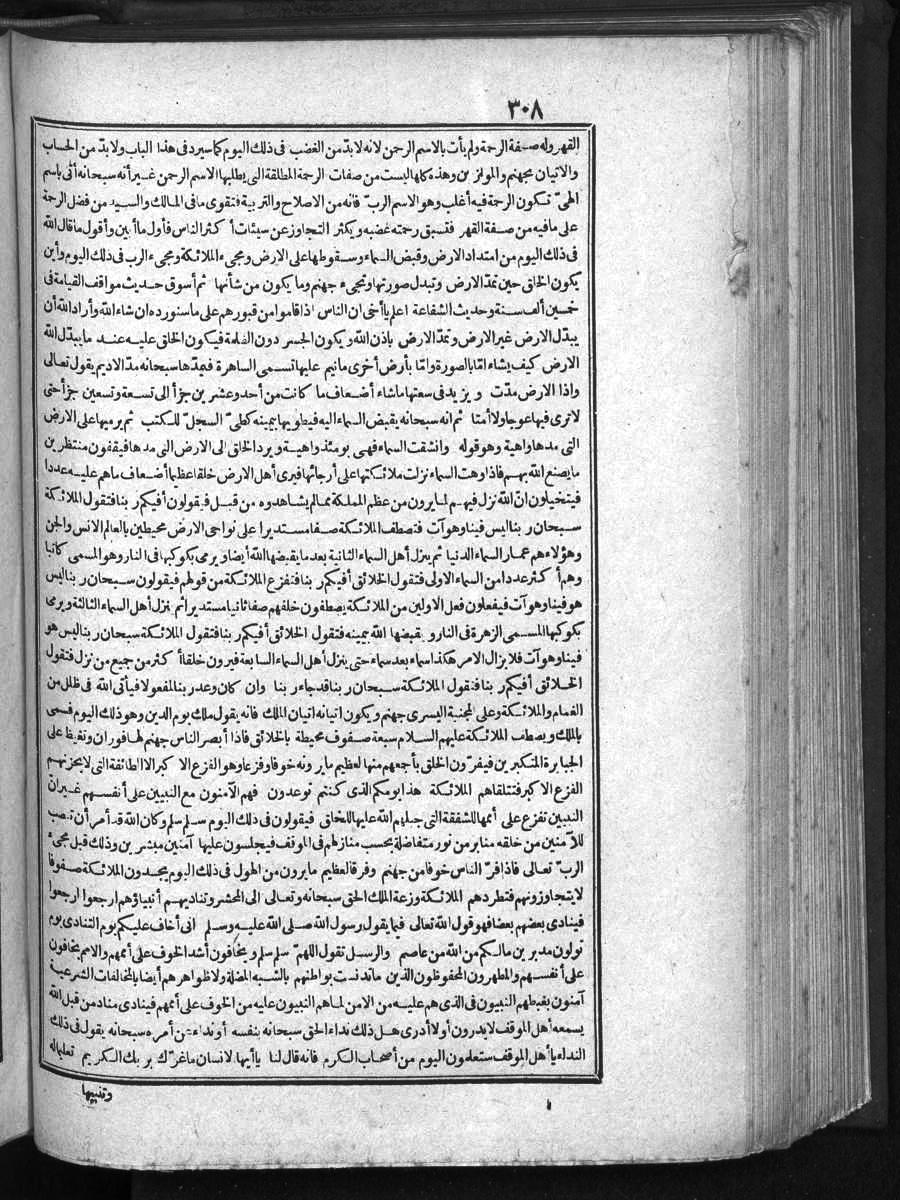 ٣٠٨
القهر وله صفة الرحمة ولم يأت بالاسم الرحمن لانه لا بد من الغضب فى ذلك اليوم كما سيرد فى هذا الباب ولا بد من الحساب
والاتيان بجهنم والموازين وهذه كلها ليست من صفات الرحمة المطلقة التى يطلبها الاسم الرحمن غير أنه سبحانه أتى باسم
الهىّ تكون الرحمة فيه أغلب وهو الاسم الربّ فانه من الاصلاح والتربية فتقوى ما فى المالك والسيد من فضل الرحمة
على ما فيه من صفة القهر فتسبق رحمته غضبه ويكثر التجاوز عن سيئات أكثر الناس فأول ما أبين وأقول ما قال الله
فى ذلك اليوم من امتداد الارض وقبض السماء وسقوطها على الارض ومجىء الملائكة ومجىء الرب فى ذلك اليوم وأين
يكون الخلق حين تمدّ الارض وتبدل صورتها وتجىء جهنم وما يكون من شأنها ثم أسوق حديث مواقف القيامة فى
خمسين ألف سنة وحديث الشفاعة اعلم يا أخى ان الناس اذا قاموا من قبورهم على ما سنورده ان شاء الله وأراد الله أن
يبدّل الارض غير الارض وتمدّ الارض باذن الله ويكون الجسر دون الظلمة فيكون الخلق عليه عند ما يبدّل الله
الارض كيف يشاء امّا بالصورة وامّا بأرض أخرى ما نيم عليها تسمى الساهرة فيمدّها سبحانه مدّ الاديم يقول تعالى
واذا الارض مدّت ويزيد فى سعتها ما شاء أضعاف ما كانت من أحد وعشرين جزأ الى تسعة وتسعين جزأ حتى
لا ترى فيها عوجا ولا أمتا ثم انه سبحانه يقبض السماء اليه فيطويها بيمينه كطىّ السجلّ للكتب ثم يرميها على الارض
التى مدها واهية وهو قوله وانشقت السماء فهى يومئذ واهية ويرد الخلق الى الارض التى مدها فيقفون منتظرين
ما يصنع الله بهم فاذا وهت السماء نزلت ملائكتها على أرجائها فيرى أهل الارض خلقا عظيما أضعاف ما هم عليه عددا
فيتخيلون ان الله نزل فيهم لما يرون من عظم المملكة مما لم يشاهدوه من قبل فيقولون أفيكم ربنا فتقول الملائكة
سبحان ربنا ليس فينا وهو آت فتصطف الملائكة صفا مستديرا على نواحى الارض محيطين بالعالم الانس والجن
وهؤلاء هم عمار السماء الدنيا ثم ينزل أهل السماء الثانية بعد ما يقبضها الله أيضا ويرمى بكوكبها فى النار وهو المسمى كاتبا
وهم أكثر عددا من السماء الاولى فتقول الخلائق أفيكم ربنا فتفزع الملائكة من قولهم فيقولون سبحان ربنا ليس
هو فينا وهو آت فيفعلون فعل الاولين من الملائكة يصطفون خلفهم صفا ثانيا مستديرا ثم ينزل أهل السماء الثالثة ويرمى
بكوكبها المسمى الزهرة فى النار ويقبضها الله بيمينه فتقول الخلائق أفيكم ربنا فتقول الملائكة سبحان ربنا ليس هو
فينا وهو آت فلا يزال الامر هكذا سماء بعد سماء حتى ينزل أهل السماء السابعة فيرون خلقا أكثر من جميع من نزل فتقول
الخلائق أفيكم ربنا فتقول الملائكة سبحان ربنا قد جاء ربنا وان كان وعد ربنا لمفعولا فيأتى الله فى ظلل من
الغمام والملائكة وعلى المجنبة اليسرى جهنم ويكون اتيانه اتيان الملك فانه يقول ملك يوم الدين وهو ذلك اليوم فسمى
بالملك ويصطف الملائكة عليهم السلام سبعة صفوف محيطة بالخلائق فاذا أبصر الناس جهنم لها فوران وتغيظ على
الجبابرة المتكبرين فيفرّون الخلق بأجمعهم منها لعظيم ما يرونه خوفا وفزعا وهو الفزع الاكبر الا الطائفة التى لا يحزنهم
الفزع الاكبر فتتلقاهم الملائكة هذا يومكم الذى كنتم توعدون فهم الآمنون مع النبيين على أنفسهم غير ان
النبيين تفزع على أممها للشفقة التى جبلهم الله عليها للخلق فيقولون فى ذلك اليوم سلم سلم وكان الله قد أمر أن تنصب
للآمنين من خلقه منابر من نور متفاضلة بحسب منازلهم فى الموقف فيجلسون عليها آمنين مبشرين وذلك قبل مجىء
الربّ تعالى فاذا فرّ الناس خوفا من جهنم وفرقا لعظيم ما يرون من الهول فى ذلك اليوم يجدون الملائكة صفوفا
لا يتجاوزونهم فتطردهم الملائكة وزعة الملك الحق سبحانه وتعالى الى المحشر وتناديهم أنبياؤهم ارجعوا ارجعوا
فينادى بعضهم بعضا فهو قول الله تعالى فيما يقول رسول الله صلى الله عليه وسلم انى أخاف عليكم يوم التنادى يوم
تولون مدبرين ما لكم من الله من عاصم والرسل تقول اللهمّ سلم سلم ويخافون أشد الخوف على أممهم والامم يخافون
على أنفسهم والمطهرون المحفوظون الذين ما تدنست بواطنهم بالشبه المضلة ولا ظواهرهم أيضا بالمخالفات الشرعية
آمنون يغبطهم النبيون فى الذى هم عليه من الامن لما هم النبيون عليه من الخوف على أممهم فينادى مناد من قبل الله
يسمعه أهل الموقف لا يدرون أو لا أدرى هل ذلك نداء الحق سبحانه بنفسه أو نداء عن أمره سبحانه يقول فى ذلك
النداء يا أهل الموقف ستعلمون اليوم من أصحاب الكرم فانه قال لنا يا أيها الانسان ما غرّك بربك الكريم تعليما له
وتنبيها